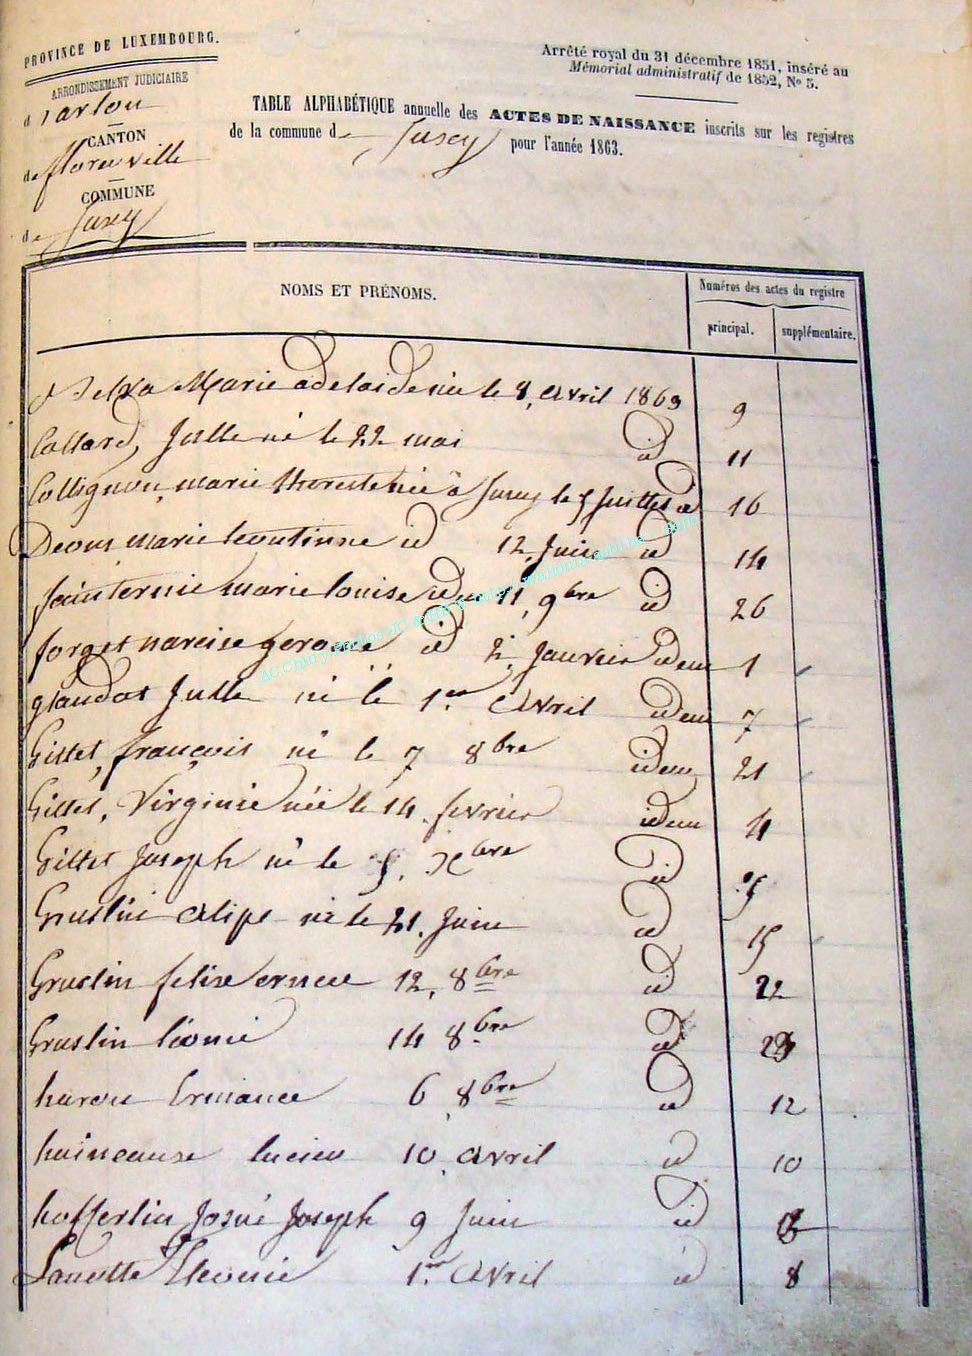 PROVINCE DE LUXEMBOURG.
ARRONDISSEMENT JUDICIAIRE
d'arlon
CANTON
de florenville
COMMUNE
de Jusey
Arrêté royal du 31 décembre 1851, inséré au
Mémorial administratif de 1852, No 5.
TABLE ALPHABÉTIQUE annuelle des ACTES DE NAISSANCE inscrits sur les registres
de la commune de Jusey pour l'année 1863.
NOMS ET PRÉNOMS.
Numéros des actes du registre
principal. supplémentaire.
Marie adelaide née le 8, avril 1863 9
Collard, Julle né le 22 mai id 11
Collignon, marie née à Jusey le 5 Juillet id 16
marie leontinne id 12 Juin id 14
marie louise idem 11, 9bre id 26
forget narcise id 2 Janvier idem 1
glaudot Julle né le 1er Avril idem 7
Gillet, françois né le 7 8bre idem 21
Gillet, Virginie née le 14 fevrier idem 4
Gillet Joseph né le 5, Xbre id
Gruslin alipe né le 21, Juin id 15
Gruslin felixe 12, 8bre id 22
Gruslin léonie 14 8bre id 23
Ermance 6 8bre id 12
lucien 10 avril id 10
Josué Joseph 9 Juin id
Lanotte Eléonie 1er Avril id 8